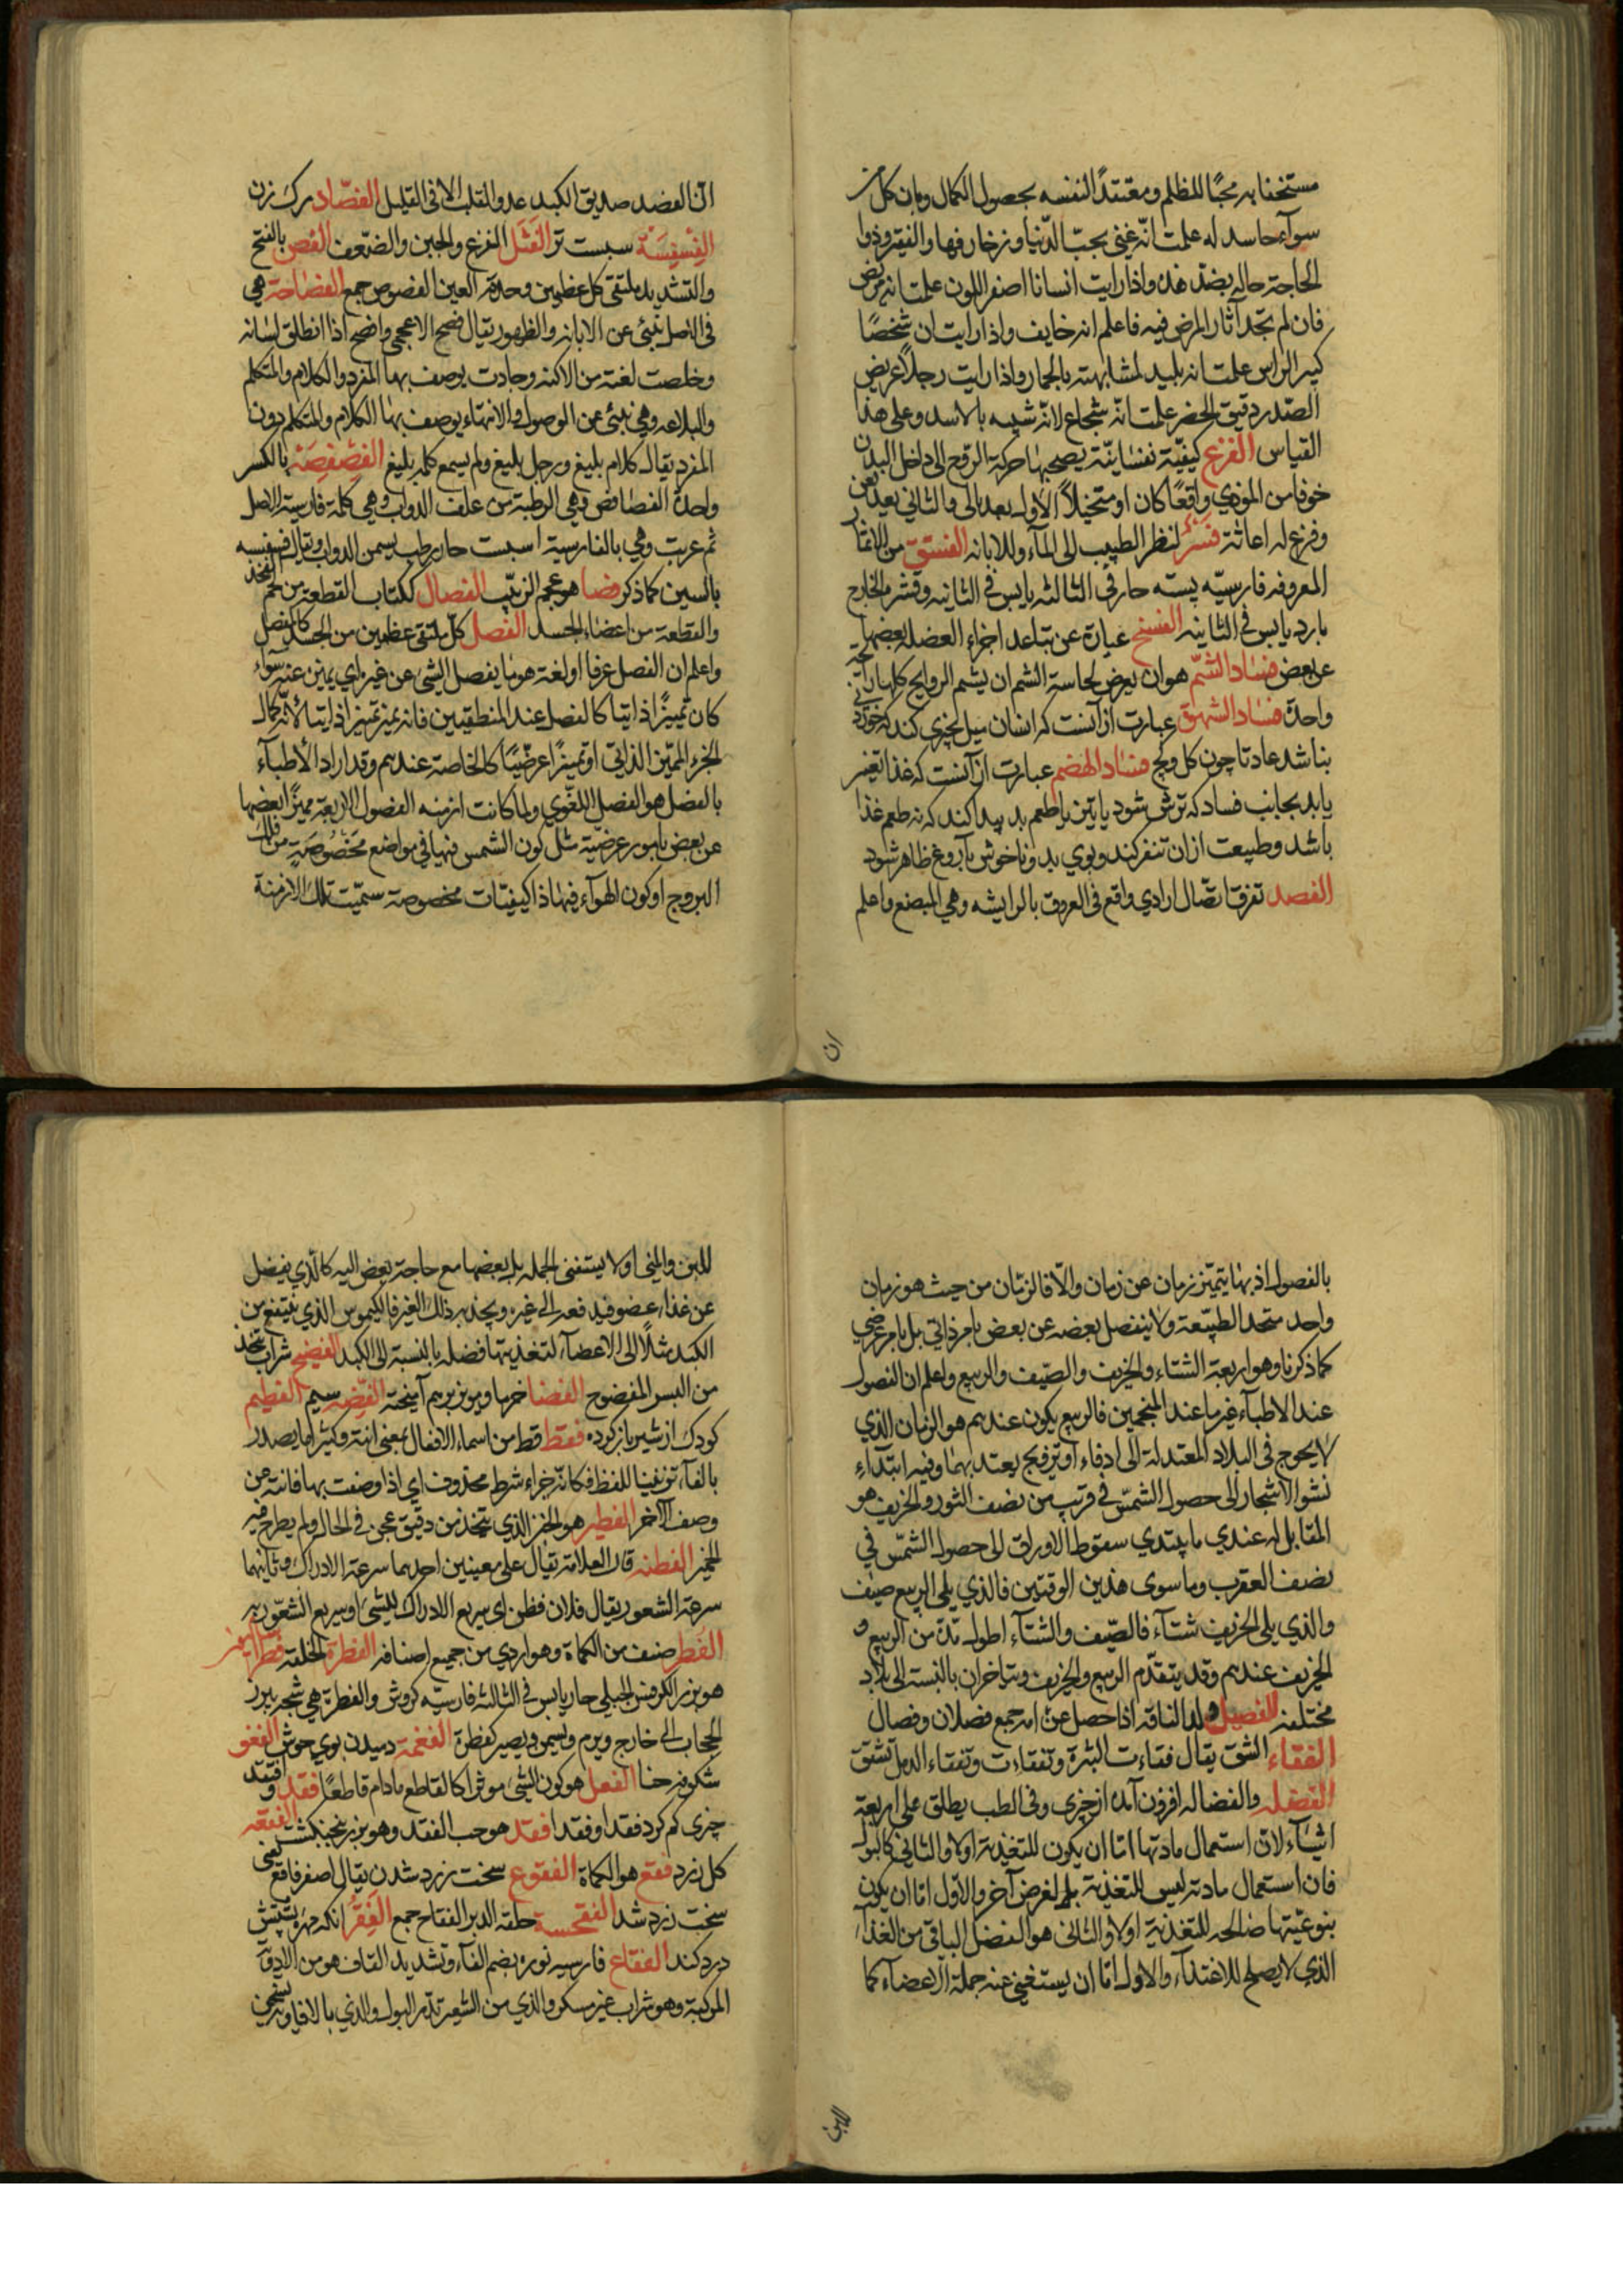 مستخفا به محبًا للظلم ومعتقدًا لنفسه بحصول الكمال وبان كل من
سواه حاسد له علمت انه غني بحب الدنيا وزخارفها والفقير وذوا
الحاجة حاله بضد هذه واذا رايت انسانا اصفر اللون علمت انه مريض
فان لم تجد آثار المرض فيه فاعلم انه خايف واذا رايت ان شخصًا
كبير الراس علمت انه بليد لمشابهته بالحمار واذا رايت رجلا عريض
الصدر دقيق الخصر علمت انه شجاع لانه شبيه بالاسد وعلى هذا
القياس الفزع كيفية نفسانية يصحبها حركة الروح الى داخل البدن
خوفا من الموذي واقعًا كان او متخيلًا الاول يعدى بالى والثاني يعدى بمن
وفزع له اعاثة فسر لنظر الطبيب الى الماء وللابانه الفستق من الاثمار
المعروفه فارسيه پسته حار في الثالثه يابس في الثانيه وقشره الخارج
بارد يابس في الثانيه الفسخ عبارة عن تباعد اجزاء العضله بعضها
عن بعض فساد الشم هو ان يعرض لحاسة الشم ان يشم الروايح كلها رائحة
واحدة فساد الشهوة عبارت از آنست كه انسان ميل بچيزي كند كه خوردني
نباشد عادتا چون كل وكچ فساد الهضم عبارت از آنست كه غذا تغير
يابد بجانب فساد كه ترش شود يا تين يا طعم بد پيدا كند كه نه طعم غذا
باشد وطبيعت ازان تنفر كند وبوي بد وناخوش با آروغ ظاهر شود
الفصد تفرق اتصال ارادي واقع في العروق بالرايشه وهي المبضع واعلم
ان
انّ الفصد صديق الكبد عدو القلب الا في القليل الفصّاد رك زن
الفسفسة سبست تر الفشل الفزع والجبن والضعف الفص بالفتح
والتشديد ملتقى كل عظمين وحدقة العين الفصوص جمع الفصاحة هي
في الاصل تنبئ عن الابانه والظهور يقال فصح الاعجمي وافصح اذا انطلق لسانه
وخلصت لغته من اللكنه وجادت يوصف بها المفرد والكلام والمتكلم
والبلاعه وهي تنبئ عن الوصول والانتهاء يوصف بها الكلام والمتكلم دون
المفرد يقال كلام بليغ ورجل بليغ ولم يسمع كلمه بليغ الفصفصة بالكسر
واحدة الفصافص وهي الرطبة من علف الدواب وهي كلمة فارسية الاصل
ثم عربت وهي بالفارسية اسبست حار رطب يسمن الدواب ويقال فسفسه
بالسين كما ذكر فصا هو عجم الزبيب الفصال ككتاب القطعة من لحم الفخذ
والقطعة من اعضاء الجسد الفصل كل ملتقى عظمين من الجسد كالمفصل
واعلم ان الفصل عرفا او لغة هو ما يفصل الشئ عن غيره اي يميز عنه سواء
كان تمييزًا ذاتيا كالفصل عند المنطقيين فانه يميز تمييزا ذاتيا لانه كمال
الجزء المميز الذاتي او تمييزًا عرضيًا كالخاصة عندهم وقد اراد الاطباء
بالفصل هو الفصل اللغوي ولما كانت ازمنه الفصول الاربعة مميزًا بعضها
عن بعض بامور عرضية مثل كون الشمس فيها في مواضع مخصوصة من فلك
البروج او كون الهواء فيها ذا كيفيات مخصوصة سميت تلك الازمنة
بالفصول اذ بها يتميز زمان عن زمان والا فالزمان من حيث هو زمان
واحد متحد الطبيعة ولا ينفصل بعضه عن بعض بامر ذاتي بل بامر عرضي
كما ذكرنا وهو اربعة الشتاء والخريف والصيف والربيع واعلم ان الفصول
عند الاطباء غير ما عند المنجمين فالربيع يكون عندهم هو الزمان الذي
لا يحوج في البلاد المعتدلة الى ادفاء او ترويح يعتد بهما وفيه ابتداء
نشو الاشجار الى حصول الشمس في قرب من نصف الثور والخريف هو
المقابل له عندي ما يبتدي سقوط الاوراق الى حصول الشمس في
نصف العقرب وما سوى هذين الوقتين فالذي يلي الربيع صيف
والذي يلي الخريف شتاء فالصيف والشتاء اطول مدة من الربيع و
الخريف عندهم وقد يتقدم الربيع والخريف ويتاخران بالنسبة الى بلاد
مختلفه الفصيل ولد الناقه اذا فصل عن امه جمع فصلان وفصال
الفقاء الشق يقال فقاءت البثرة وتفقاءت وتفقاء الدمل تشقق
الفضله والفضاله افزون آمد از چيزي وفي الطب يطلق على اربعة
اشياء لان استعمال مادتها اما ان يكون للتغذية اولا والثاني كالبول
فان استعمال مادته ليس للتغذية بل لغرض آخر والاول اما ان يكون
بنوعيتها صالحه للتغذية اولا والثاني هو الفضل الباقي من الغذاء
الذي لا يصلح للاغتذاء والاول اما ان يستغني عنه جملة الاعضاء كما
للبن
للبن والمني اولا يستغني الجمله بل بعضها مع حاجة بعض اليه كالذي يفضل
عن غذاء عضو فيدفعه الى غيره ويجذبه ذلك الغير فالكيموس الذي يندفع من
الكبد مثلًا الى الاعضاء لتغذيتها فضله بالنسبة الى الكبد الفضيح شراب يتخذ
من البسر المفضوح الفضا خرما ومويز برهم آميخته الفضه سيم الفطيم
كودك از شير باز كرده فقط قط من اسماء الافعال بمعنى انته وكثيرا ما يصدر
بالفاء تزيينا للفظ فكانه جزاء شرط محذوف اي اذا وصفت بها فانته عن
وصف الاخر الفطير هو الخبز الذي يتخذ من دقيق عجن في الحال ولم يطرح فيه
الخمير الفطنه قال العلامة يقال على معنيين احدهما سرعة الادراك وثانيهما
سرعة الشعور يقال فلان فطن اي سريع الادراك للشئ او سريع الشعور به
الفطر صنف من الكماة وهو اردي من جميع اصنافه الفطرة الخلقة
هو بزر الكرفس الجبلي حار يابس في الثالثه فارسيه كروش والفطرة هي شجه يبرز
الحجاب الى خارج ويرم ويسيمن ويصير كفطرة الفغمة دميدن بوي خوش الفغو
شكوفه حنا الفعل هو كون الشئ موثرا كالقاطع مادام قاطعًا فقد وافتقد
چيزي كم كرد فقد اوفقد افقد هو حب الفقد وهو بزر بنجنكشت الفقعه
كل زرد فقع هو الكماة الفقوع سخت زرد شدن يقال اصفر فاقع يعني
سخت زرد شد الفقحسة حلقة الدبر الفقاح جمع الفقر انكه مهره پشتش
درد كند الفقاع فارسيه نوره بضم الفاء وتشديد القاف هو من الادوية
المركبة وهو شراب غير مسكر والذي من الشعير تدر البول والذي بالافاويه يسخن